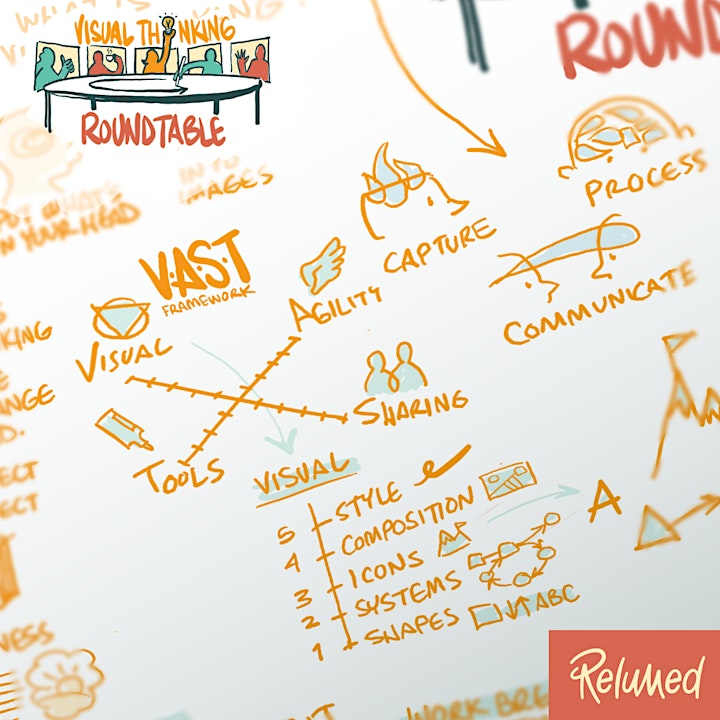 VISUAL THINKING
ROUNDTABLE
ROUND
INTO
IMAGES
PUT WHAT'S
IN YOUR HEAD
V.A.S.T
FRAMEWORK
VISUAL
AGILITY
TOOLS
SHARING
CAPTURE
PROCESS
COMMUNICATE
KING
ANGE
D.
ECT
ECT
NESS
VISUAL
5 STYLE
4 COMPOSITION
3 ICONS
2 SYSTEMS
1 SHAPES ABC
A
WORK BRE
Relumed